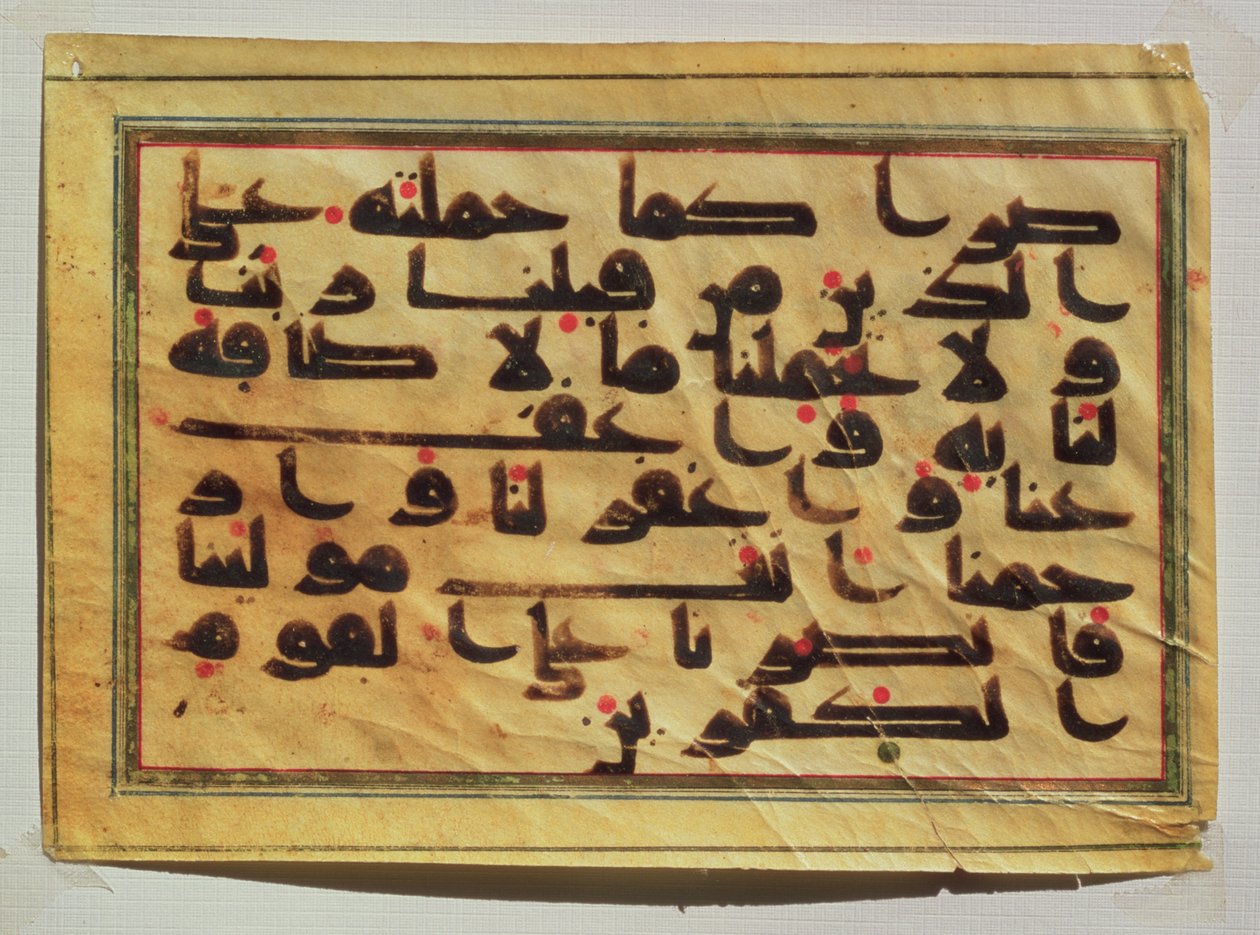 صرا كما حملته على
الذين من قبلنا ربنا
ولا تحملنا ما لا طاقة
لنا به واعف
عنا واغفر لنا وار
حمنا انت مولينا
فانصرنا على القوم
الكفرين